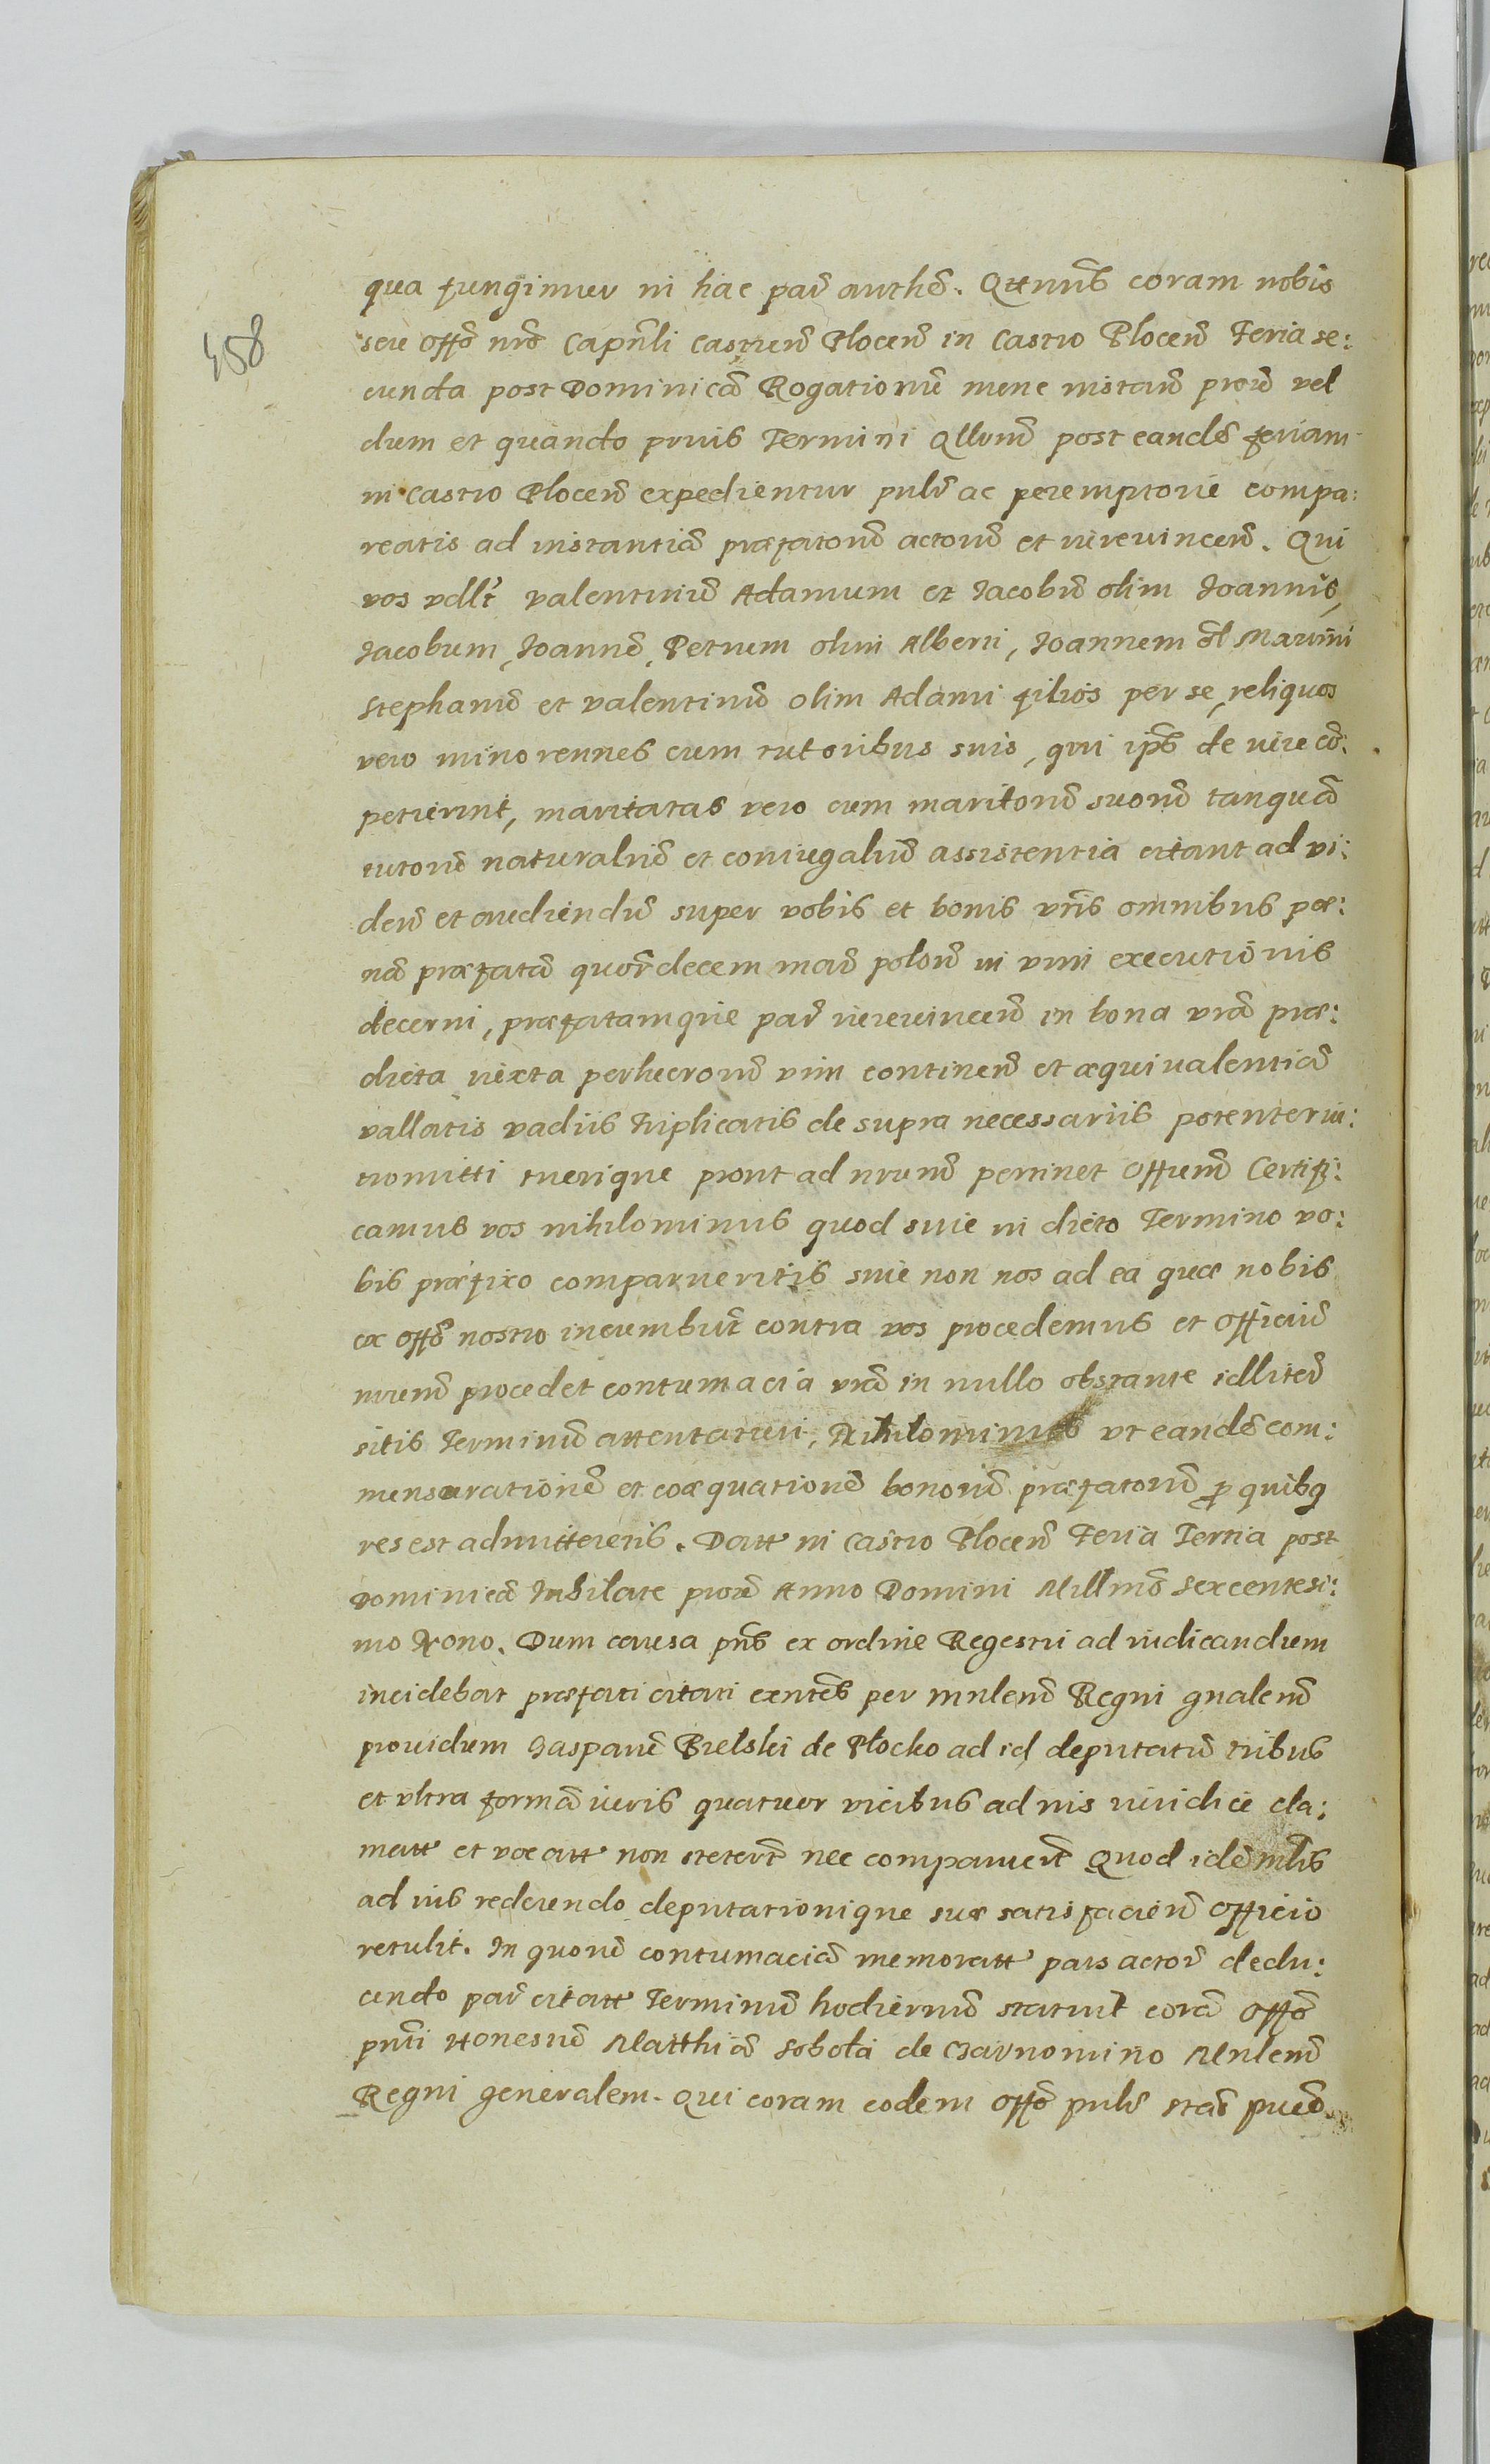 458
qua fungimur in hac par̃ autheẽ. Qttnus coram nobis
seu offõ nr̃o Capñli Castreñ Ploceñ in Castro Ploceñ Feria se:
cunda post Dominicã Rogationũ nunc instañ proxẽ vel
dum et quando prius Termini Qllum̃ post eandẽ feriam
in Castro Ploceñ expedientur pnlr̃ ac peremptorie compa:
reatis ad instantiã præfatorũ actorũ et iureuinceñ. Qui
vos vdllt valentinũ Adamum et Jacobũ olim Joannis,
Jacobum, Joannẽ, Petrum olim Alberti, Joannem ol̃ Martini
Stephanũ et valentinũ olim Adami filios per se, reliquos
vero minorennes cum tutoribus suis, qui ip̃s de iure cõ:
petierint, maritatas vero cum maritorũ suorũ tanquã
tutorũ naturaliũ et coniugaliũ assistentia citant ad vi:
deñ et audiendũ super vobis et bonis vr̃is omnibus poe:
nã præfatã quor̃decem mar̃ poloñ in vim executionis
decerni, præfatamque par̃ iureuinceñ in bona vrã præ:
dicta iuxta perlucrorũ vim contineñ et æquiualentiã
vallatis vadiis triplicatis de supra necessariis potenter in:
tromitti tuerique prout ad nrum̃ pertinet Offum̃ Certifi:
camus vos nihilominus quod siue in dicto Termino vo:
bis præfixo comparueritis siue non nos ad ea quæ nobis
ex offõ nostro incumbũt contra vos procedemus et officiũ
nrum̃ procedet contumacia vrã in nullo obstante idlliteñ
sitis Terminũ attentaturi, Nihilominus vt eandẽ com:
mensurationẽ et coæquationẽ bonorũ præfatorũ p quibq
res est admitteretis. Datt in Castro Ploceñ Feria Tertia post
Dominicã Jubilate proxẽ Anno Domini Millmõ Sexcentesi:
mo Nono. Dum causa pñs ex ordine Regestri ad iudicandum
incidebat præfati citati exntẽs per mnlem̃ Regni gnalem̃
prouidum Gasparũ Bielski de Płocko ad id deputatũ tribus
et vltra formã iuris quatuor vicibus ad iuis iuridice cla:
matt et vocatt non stetert̃ nec comparuert̃ Quod idẽ mlis
ad iuis redeundo deputationique suæ satisfacieñ officio
retulit. In quorũ contumaciã memoratt pars actor̃ dedu:
cendo par̃ citatt Terminũ hodiernũ statuit corã offõ
pnti Honestũ Matthiã Sobota de Czarnomino Mnlem̃
Regni generalem. Qui coram eodem offõ pnlr̃ stañ pueõ